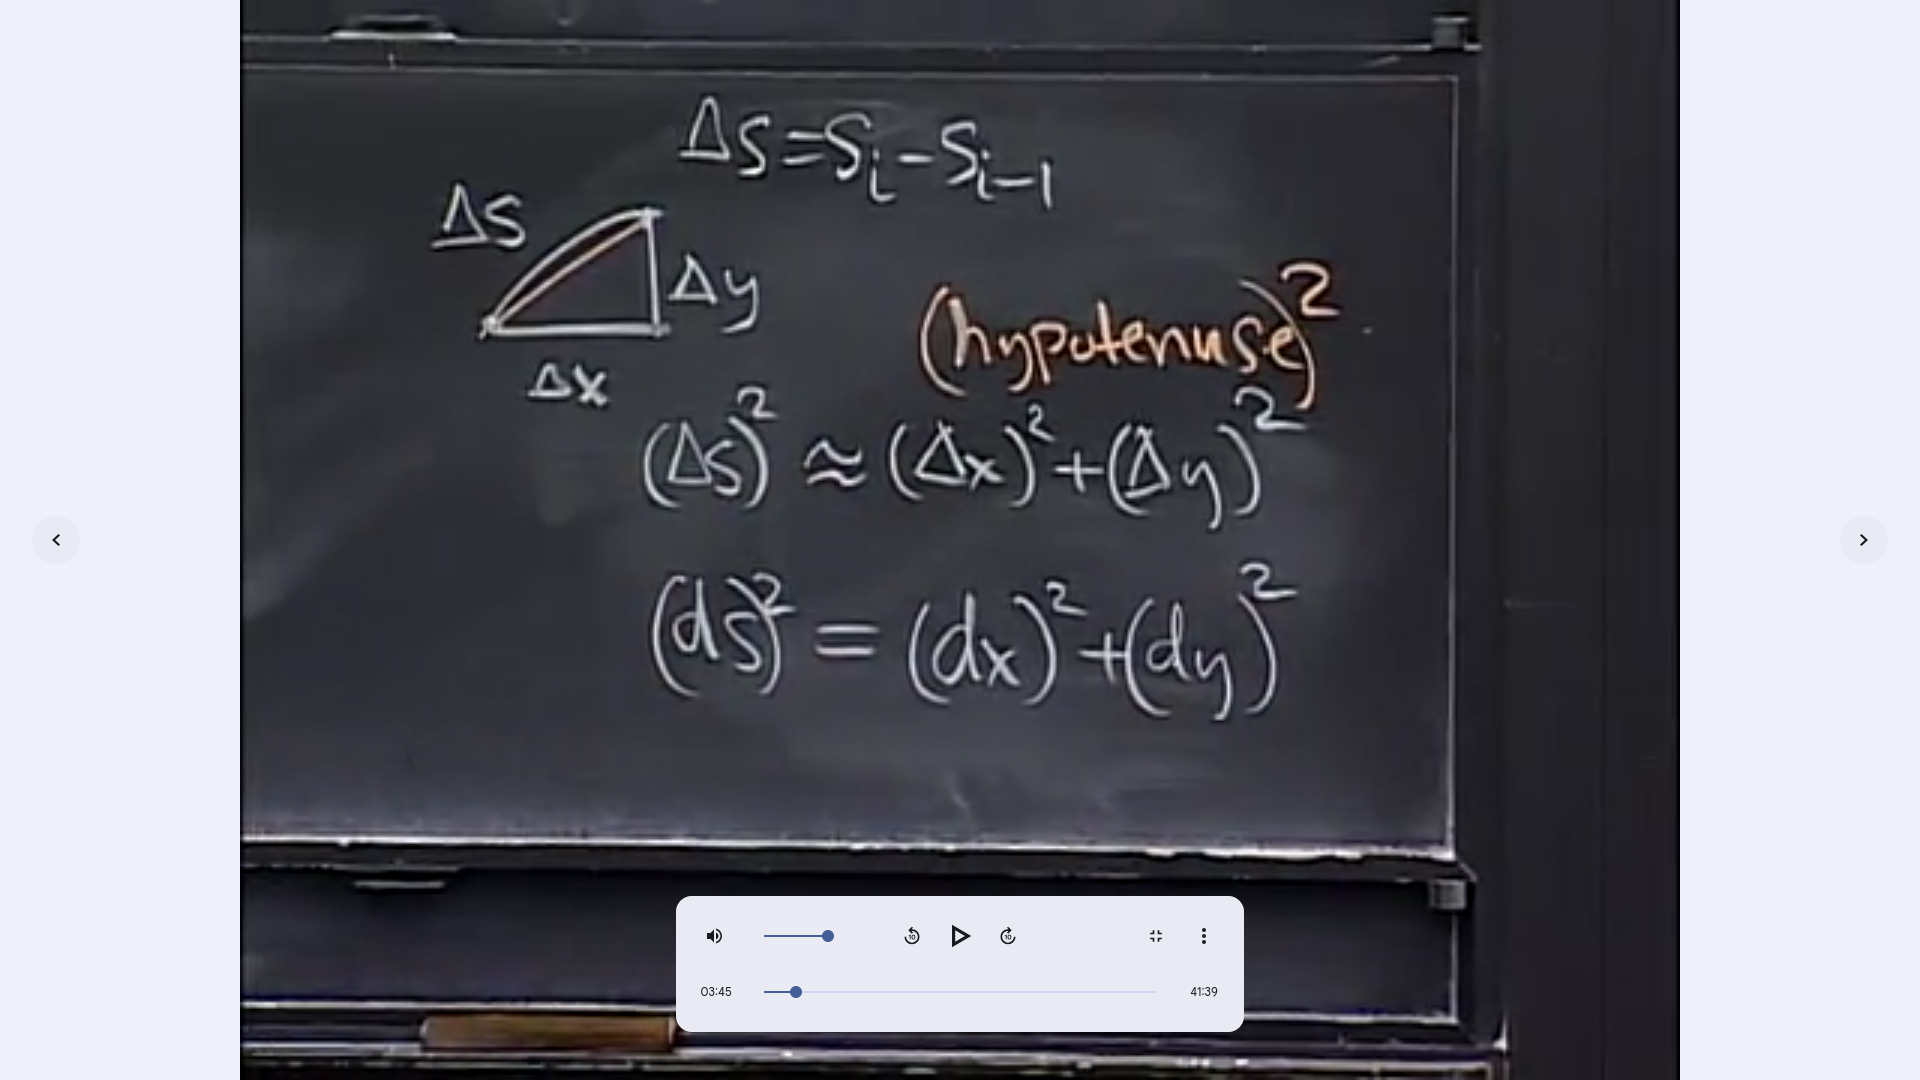 Δs=Sᵢ-Sᵢ₋₁
Δs
Δy
(hypotenuse)²
Δx
(Δs)² ≈ (Δx)²+(Δy)²
(ds)² = (dx)²+(dy)²
10
10
03:45
41:39